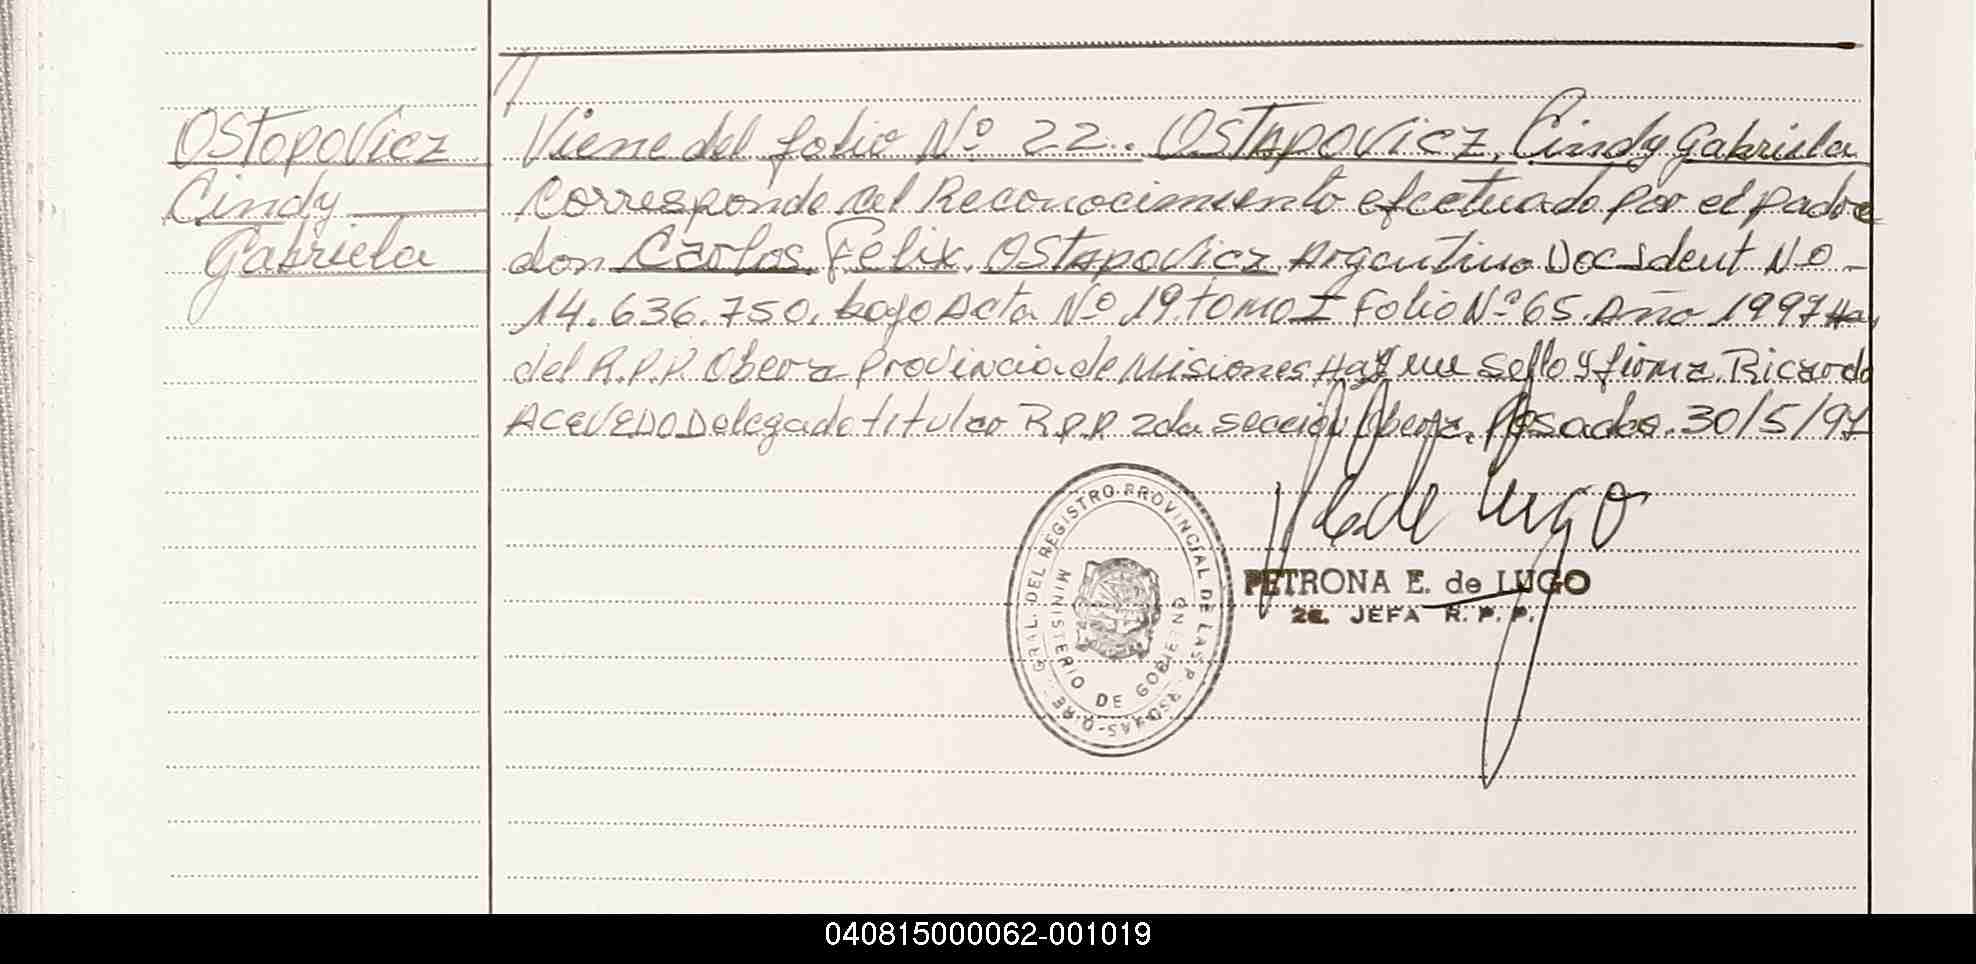 Ostopovicz
Cindy
Gabriela
Viene del folio Nº 22. OSTAPOVICZ, Cindy Gabriela
Corresponde al Reconocimiento efectuado por el padre
don Carlos Felix OSTAPOVICZ Argentino Doc Ident Nº
14.636.750. bajo Acta Nº 19 tomo I Folio Nº 65. Año 1997
del R.P.P. Obera Provincia de Misiones Hay un sello y firma Ricardo
ACEVEDO Delegado titular R.P.P. 2da sección Obera. Posadas. 30/5/97
de Lugo
GRAL. DEL REGISTRO PROVINCIAL DE LAS P
MINISTERIO DE GOBIERNO
PETRONA E. de LUGO
2a. JEFA R. P. P.
040815000062-001019